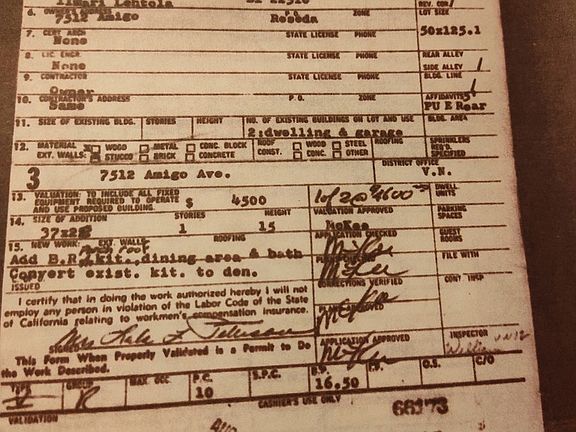 Lentola
REV. COR/
6. OWNER'S ADDRESS P.O. ZONE LOT SIZE
7512 Amigo Reseda
7. CERT ARCH STATE LICENSE PHONE 50x125.1
None
8. LIC. ENGR. STATE LICENSE PHONE REAR ALLEY
None SIDE ALLEY /
9. CONTRACTOR STATE LICENSE PHONE BLDG. LINE
Owner
10. CONTRACTOR'S ADDRESS P.O. ZONE AFFIDAVITS
Same PU E Rear
11. SIZE OF EXISTING BLDG. STORIES HEIGHT NO. OF EXISTING BUILDINGS ON LOT AND USE BLDG. AREA
2:dwelling & garage
12. MATERIAL WOOD METAL CONC. BLOCK ROOF WOOD STEEL ROOFING SPRINKLERS
EXT. WALLS: STUCCO BRICK CONCRETE CONST. CONC. OTHER REQ'D. SPECIFIED
3 7512 Amigo Ave. DISTRICT OFFICE
V.N.
13. VALUATION: TO INCLUDE ALL FIXED
EQUIPMENT REQUIRED TO OPERATE $ 4500
AND USE PROPOSED BUILDING. VALUATION APPROVED DWELL UNITS
14. SIZE OF ADDITION STORIES HEIGHT McKee PARKING SPACES
1 15 APPLICATION CHECKED
15. NEW WORK: EXT. WALLS ROOFING GUEST ROOMS
Add B.R., kit., dining area & bath FILE WITH
Convert exist. kit. to den. CORRECTIONS VERIFIED CONT INSP
ISSUED
I certify that in doing the work authorized hereby I will not
employ any person in violation of the Labor Code of the State
of California relating to workmen's compensation insurance.
This Form When Properly Validated is a Permit to Do
the Work Described.
APPLICATION APPROVED INSPECTOR
TYPE GROUP MAX. OCC. P.C. S.P.C. B.P. I.F. O.S. C/O
V R 10 16.50
CASHIER'S USE ONLY
VALIDATION 68173